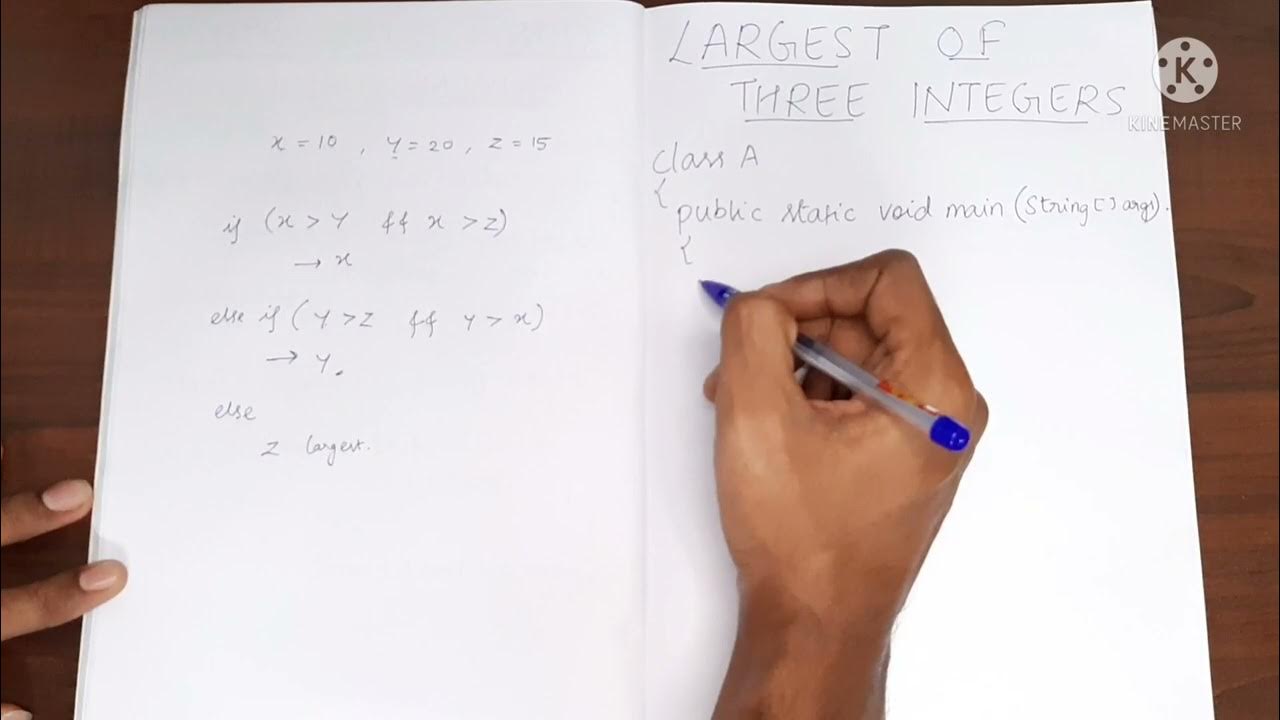 x = 10 , Y = 20 , z = 15
if (x > Y && x > z)
→ x
else if ( Y > Z && Y > x)
→ Y.
else
Z largest.
LARGEST OF
THREE INTEGERS
class A
{
public static void main (String [] args).
{
K
KINEMASTER